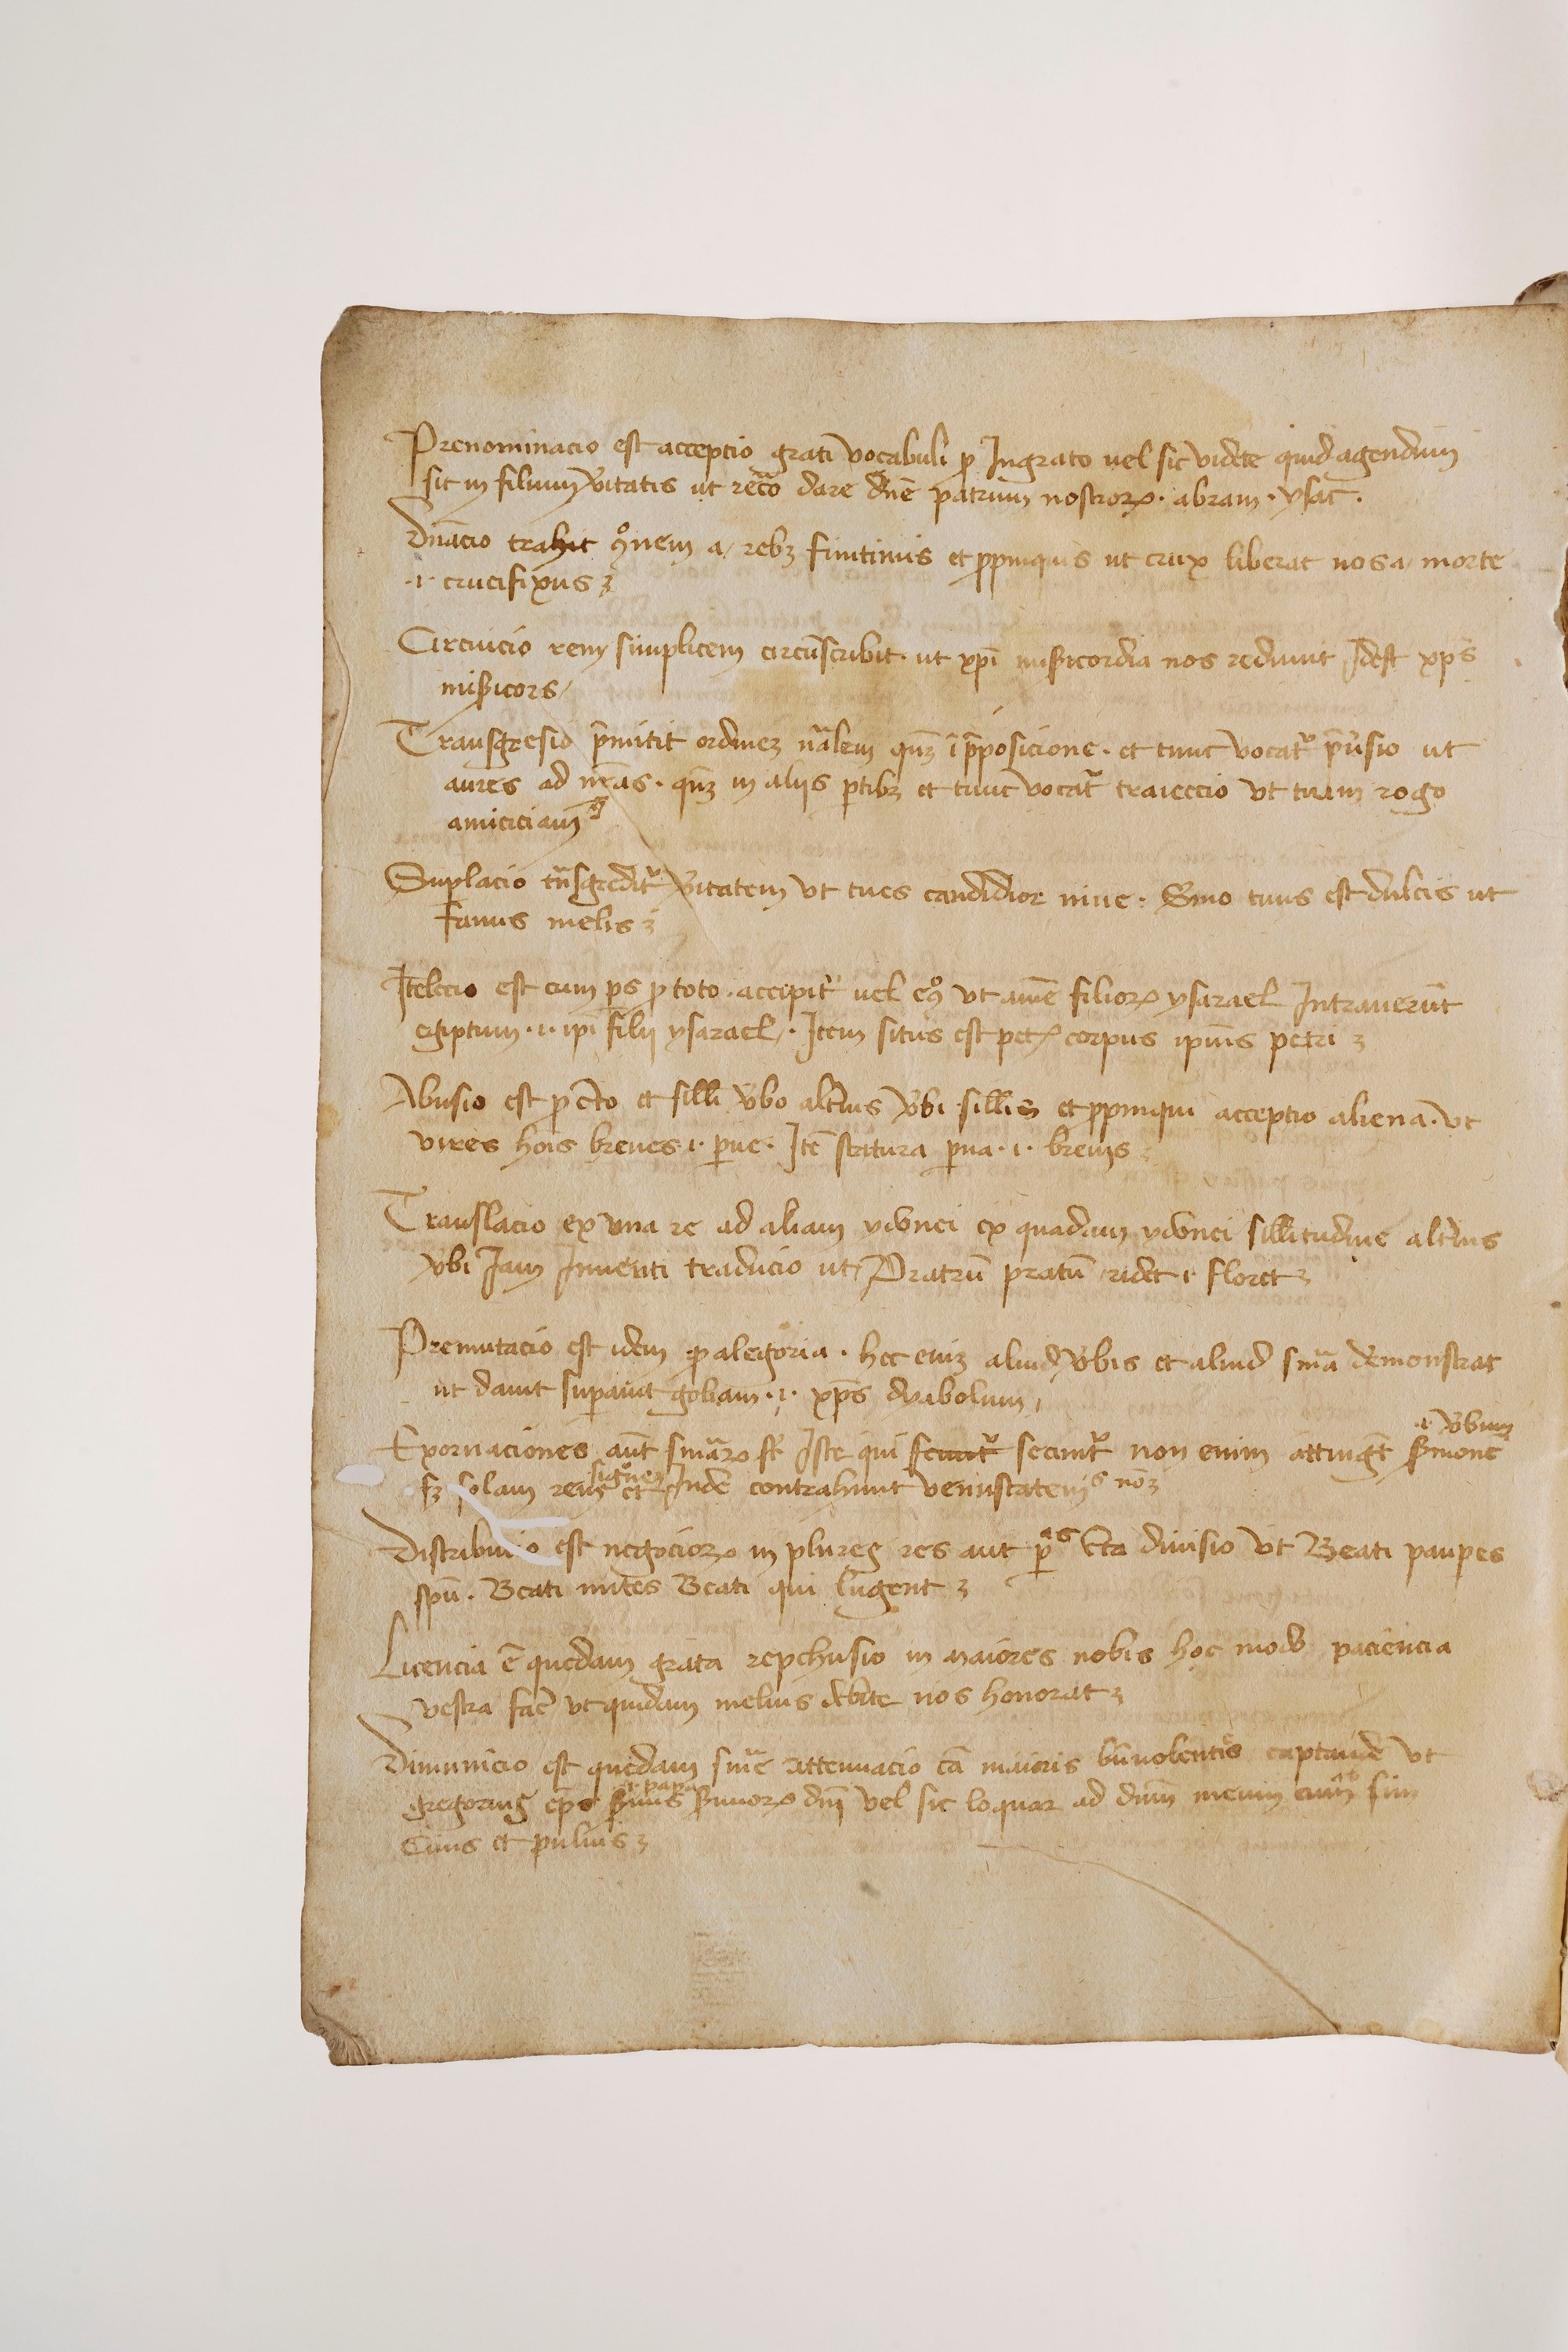 Prenominacio est acceptio grati vocabuli ꝓ Ingrato uel sic videte quid agendum
sit in filium v̄itatis ut recto dare dn̄e patrum nostroꝝ · abram · ysac ·
Dn̄acio trahit ꝯ̊nem a / rebꝫ finitimis et ꝓpinquis ut crux liberat nos a / morte
·i· crucifixus ꝫ
Circuicio rem simplicem circūscribit · ut xp̄i mīsicordia nos redimit Idest xp̄s
misicors /
Transgresio p̄mitit ordinēꝫ nālem qn̄ꝫ ī p̄posicione · et tunc vocatᷣ p̄ūsio ut
aures ad nr̄as · qn̄ꝫ in aliis ꝑtibꝫ et tunc vocatᷣ traieccio vt tuam rogo
amiciciam
Suplacio tn̄sgreditᷣ v̄itatem vt tu es candidior niue · S̄mo tuus est dulcis ut
fauus melis ꝫ
Itelecio est cum ꝑs ꝓ toto · accipitᷣ uel eꝯ̊ vt aīme filioꝝ ysarael Intrauerūt
egiptum · i · ip̄i filij ysarael / · Item situs est petꝝ corpus ipius petri ꝫ
Abusio est ꝓ c̄to et sill̄i v̄bo alt̄ius v̄bi sill̄is et ꝓpinqui acceptio aliena · vt
vires hoīs breues · i · ꝑue · Itē statura ꝑua · i · breuis
Translacio ex vna re ad aliam ydonei ex quadam ydonei sill̄itudine alt̄ius
v̄bi Iam Inuenti traducio ut / Pratrū pratū ridet · i · floret ꝫ
Premutacio est idem ꝙ alegoria · hec eniꝫ aliud v̄bis et aliud sn̄ia demonstrat
ut dauit suꝑauit goliam · i · xp̄s dyabolum /
Exornaciones aūt sn̄iaꝝ st̄ Iste qui secuntᷣ non enim attingūt s̄mone
·i· v̄bum
sꝫ solam rem et Inde contrahunt venustatem
signūeꝫ
s nōꝫ
Distribucio est negocioꝝ in plureꝫ res aut ꝑas c̄ta diuisio vt Beati pauꝑes
spū · Beati mites Beati qui lugent ꝫ
Licencia ē quedam grata repchusio in maiores nobis hoc modo paciencia
vestra facit vt quidam melius debite nos honorat ꝫ
Diminucio est quedam sn̄ie attenuacio cā maioris bn̄uolentie captande vt
gregorius ep̄s s̄uus s̄uuoꝝ dn̄i vel sic loquar ad dn̄m meum cum sim
·i· papa
Cinis et puluis ꝫ